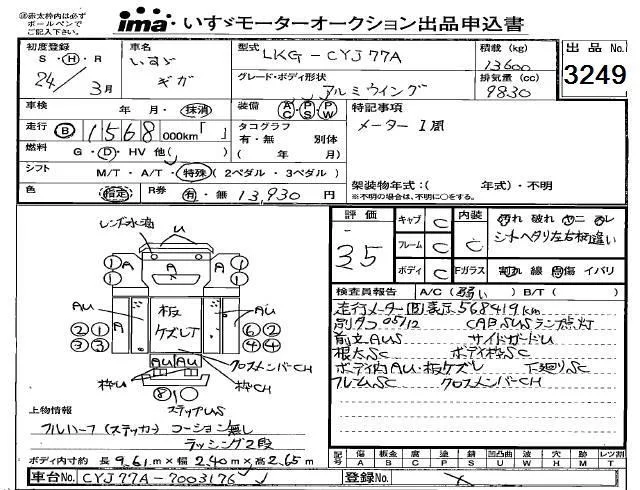 ⑱赤太枠内は必ず
ボールペンで
ご記入下さい。
ima いすゞモーターオークション出品申込書
初度登録 車名 型式 LKG-CYJ77A 積載 (kg) 出品No.
S・H・R いすゞ 13600 3249
24/3月 ギガ グレード・ボディ形状 アルミウイング 排気量 (cc) 9830
車検 年・月・抹消 装備 AC・PS・PW 特記事項
走行 B 1568 000km「 」 タコグラフ メーター1周
有・無 別体
燃料 G・D・HV 他( ) ( 年 月)
シフト M/T・A/T・特殊(2ペダル・3ペダル) 架装物年式:( 年式)・不明
色 指定 R券 有・無 13,930 円 ※不明の場合は、不明に○をする。
評価 キャブ C 内装 汚れ 破れ
3.5 フレーム C C シートヘタリ左右柄違い
ボディ C Fガラス 割れ 線 傷 イバリ
検査員報告 A/C(弱い) B/T( )
走行メーター(B)表示568419km
別タコ05/12 CAB SUSランプ点灯
前立AUS サイドガードU
根太SC ボデイ枠SC
ボディ内AU・板ケズレ 下廻りSC
フレームSC クロスメンバーCH
レンズ水滴 U
A A A
AU 板ケズレ AU
A
AU AU
枠U クロスメンバーCH
枠CH
ステップUS
上物情報
フルハーフ(ステッカー) コーション無し
ラッシング2段
ボディ内寸約 長9.61m×幅2.40m×高2.65m
記号 傷A 板金B 腐C 塗P 錆S 凹凸曲U 波W 穴H 大X レンズ割
車台No. CYJ77A-7003176 登録No.